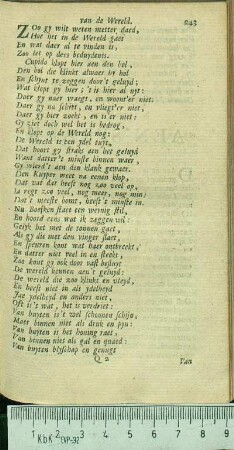 van de Wereld. 243
ZOo gy wilt weten metter daed,
Hoe het in de Wereld gaet
En wat daer al te vinden is,
Cupido klopt hier aen den bol,
Den bol die klinkt alwaer hy hol
En schynt te zeggen daer't geluyd:
Wat klopt gy hier; 't is hier al uyt:
Daer gy naer vraegt, en woont'er niet:
Daer gy na schiet, en vliegt'er niet,
Daer gy hier zoekt, en is er niet:
Gy ziet doch wel het is bedrog,
En klopt op de Wereld nog:
De Wereld is een ydel tuyt,
Dat hoort gy straks aen het geluyd
Want datter 't minste binnen waer,
En wierd't aen den klank gewaer.
Den Kuyper weet na eenen klop,
Dat vat dat heeft nog zoo veel op,
Ja zegt zoo veel, nog meer, nog min:
Dat 't meeste bomt, heeft 't minste in.
Nu Borsken staet een weynig stil,
En hoord eens wat ik zeggen wil:
Gelyk het met de tonnen gaet,
Als gy die met den vinger slaet,
En spreken kont wat haer ontbreekt,
En datter niet veel in en steekt:
Zoo kont gy ook door vast besluyt
De wereld kinnen aen't geluyd:
De wereld die zoo klinkt en vleyd,
En heeft niet in als ydelheyd
Jae ydelheyd en anders niet,
Oft is't wat, het is verdriet:
Van buyten is 't zeel schoonen schijn,
Maer binnen niet als druk en pyn:
Van buyten is het honing raet,
Van binnen niet als gal en quaed:
Van buyten blyschap en geneugt
Q 2 Van
KbK
1 2 3 4 5 6 7 8 9